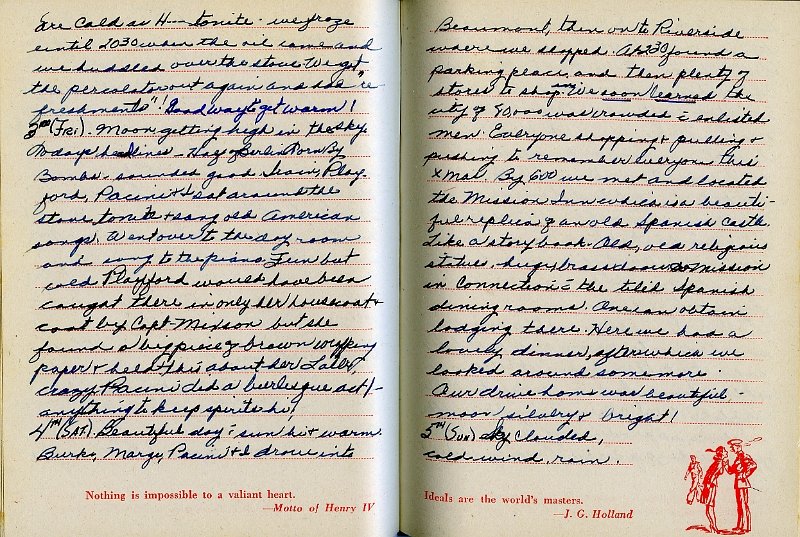 are cold as H— tonite. we froze
until 2030 when the oil came and
we huddled over the stove. We got
the percolator out again and had "re
freshments"! Good way to get warm!
3rd (FRI). Moon getting high in the sky.
Todays headlines - Hag of Berlin Torn By
Bombs - sounded good. Play
ford, Pacini & I sat around the
stove tonite & sang old American
songs. Went over to the day room
and sang to the piano. Fun but
cold. Playford would have been
caught there in only her housecoat &
coat by Capt. Mixson but she
found a big piece of brown wrapping
paper & held this about her. Later,
crazy Pacini did a burlesque act! -
anything to keep spirits hi!
4TH (SAT.) Beautiful day - sun hi & warm.
Burke, Marge, Pacini & I drove into
Nothing is impossible to a valiant heart.
—Motto of Henry IV
Beaumont, then on to Riverside
where we stopped. At 230 found a
parking peace, and then plenty of
stores to shop in. We soon learned the
city of 40000 was crowded c̄ enlisted
men. Everyone shopping & pulling &
pushing to remember everyone this
Xmas. By 600 we met and located
the Mission Inn which is a beauti-
ful replica of an old Spanish Castle.
Like a story book. Old, old religious
statues, huge brass doors to Mission
in connection c̄ the Spanish
dining rooms. One can obtain
lodging there. Here we had a
lovely dinner, after which we
looked around some more.
Our drive home was beautiful -
moon silvery & bright!
5TH (SUN) sky clouded,
cold wind, rain.
Ideals are the world's masters.
—J. G. Holland